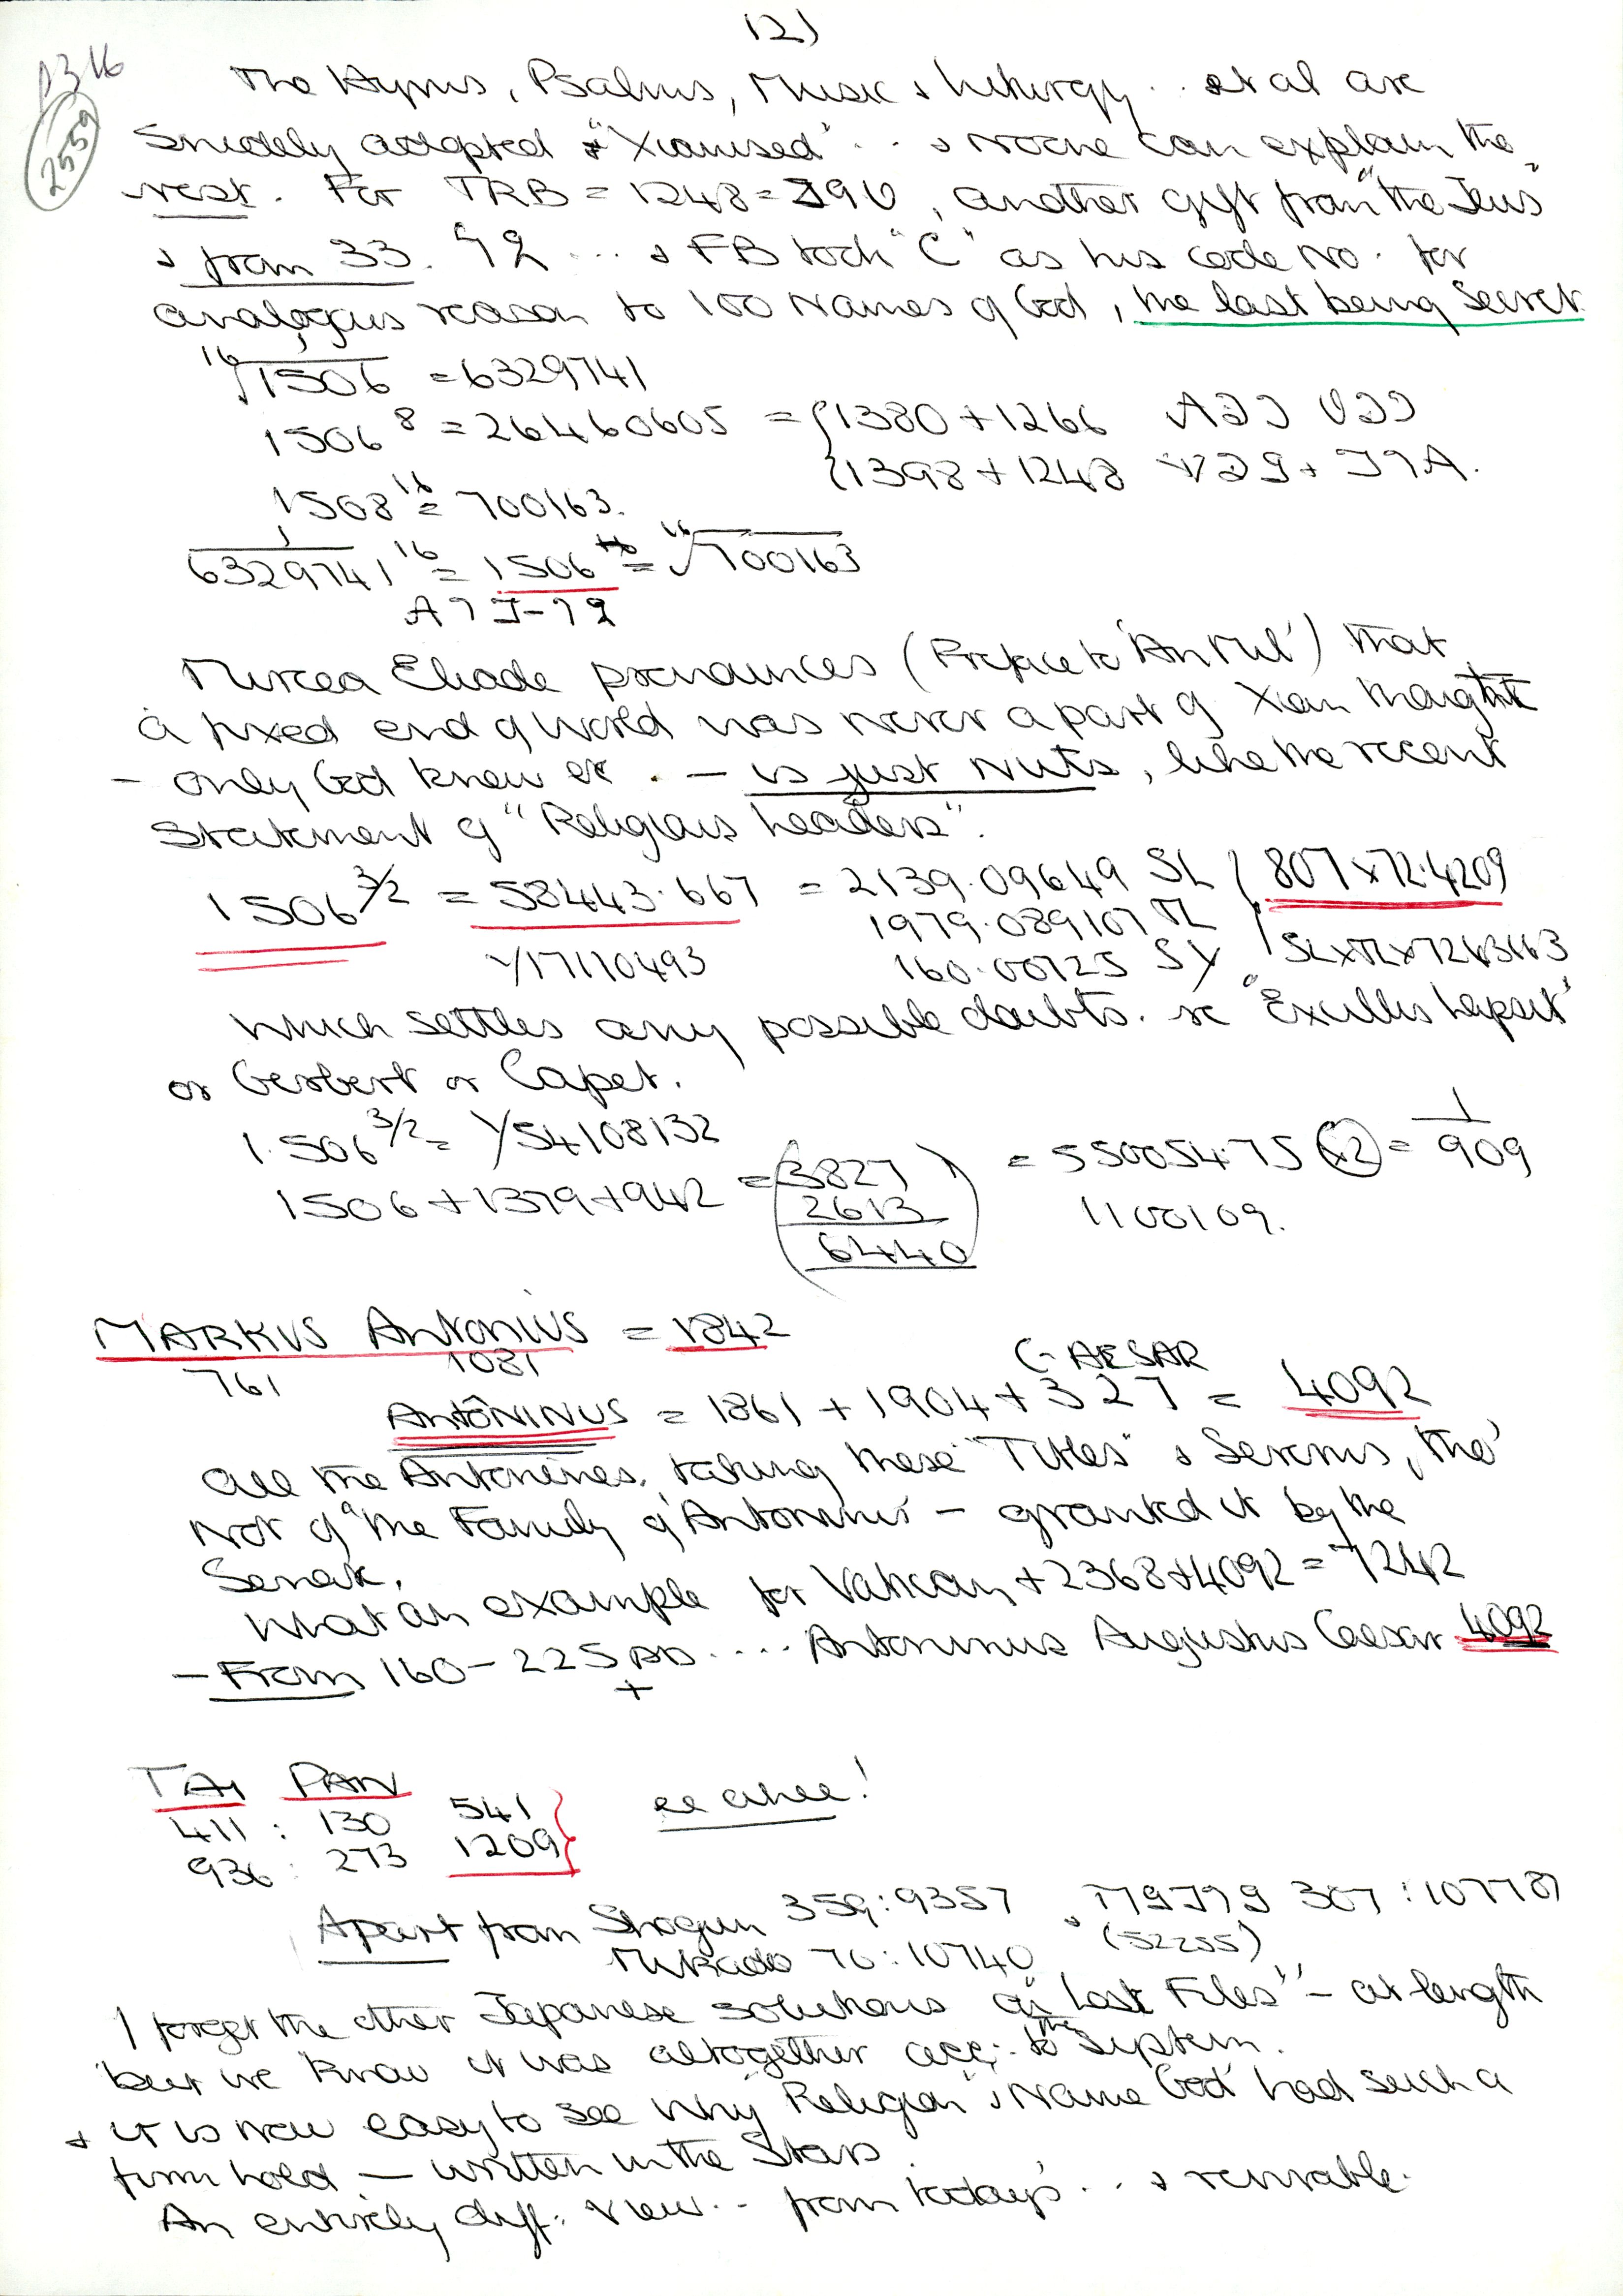 12)
p316
2559
The Hymns, Psalms, Music & Liturgy .. et al are
Snidely adopted & "Xianised" .. & Noone can explain the
rest. For TRB = 1248 = , another gift from "the Jews"
& from 33. ... & FB took "C" as his code No. for
analogous reason to 100 Names of God, the last being Secret
16√1506 = 6329741
1506^8 = 26460605 = {1380 + 1266
{1398 + 1248
1508^16 = 700163.
1/6329741^16 = 1506 = 16√700163
Mircea Eliade pronounces (Preface to 'An Mil') that
a fixed end of World was never a part of Xian thought
- only God knew etc. - is just Nuts, like the recent
Statement of "Religious Leaders".
1506^3/2 = 58443.667 = 2139.09649 SL / 807 x 72.4209
1979.089107 TL
Y17110493 160.00725 SY SLxTLx7243163
Which settles any possible doubts. re "Excillis Lapsit"
or Gerbert or Capet.
1.506^3/2 = Y54108132
1506 + 1379 + 942 = (3827) = 55005475 (x2) = 1/909
2613 1100109.
6440
MARKUS Antonius = 1842
761 1081
CAESAR
Antôninus = 1861 + 1904 + 327 = 4092
all the Antonines, taking these "Titles" & Severus, tho'
not of "the Family of Antoninus" - granted it by the
Senate.
What an example for Vatican + 2368 + 4092 = 7242
- From 160 - 225 AD .... Antoninus Augustus Caesar 4092
+
TAI PAN
411 : 130 541
936 : 273 1209 } ee ahee!
Apart from Shogun 359 : 9357 307 : 107787
Mikado 70 : 10740 (52255)
I forget the other Japanese solutions in "Lost Files" - at length
but we know it was altogether acc: to the System.
& it is now easy to see why "Religion" & Name 'God' had such a
firm hold - written in the Stars.
An entirely diff: view .. from today's .. & .